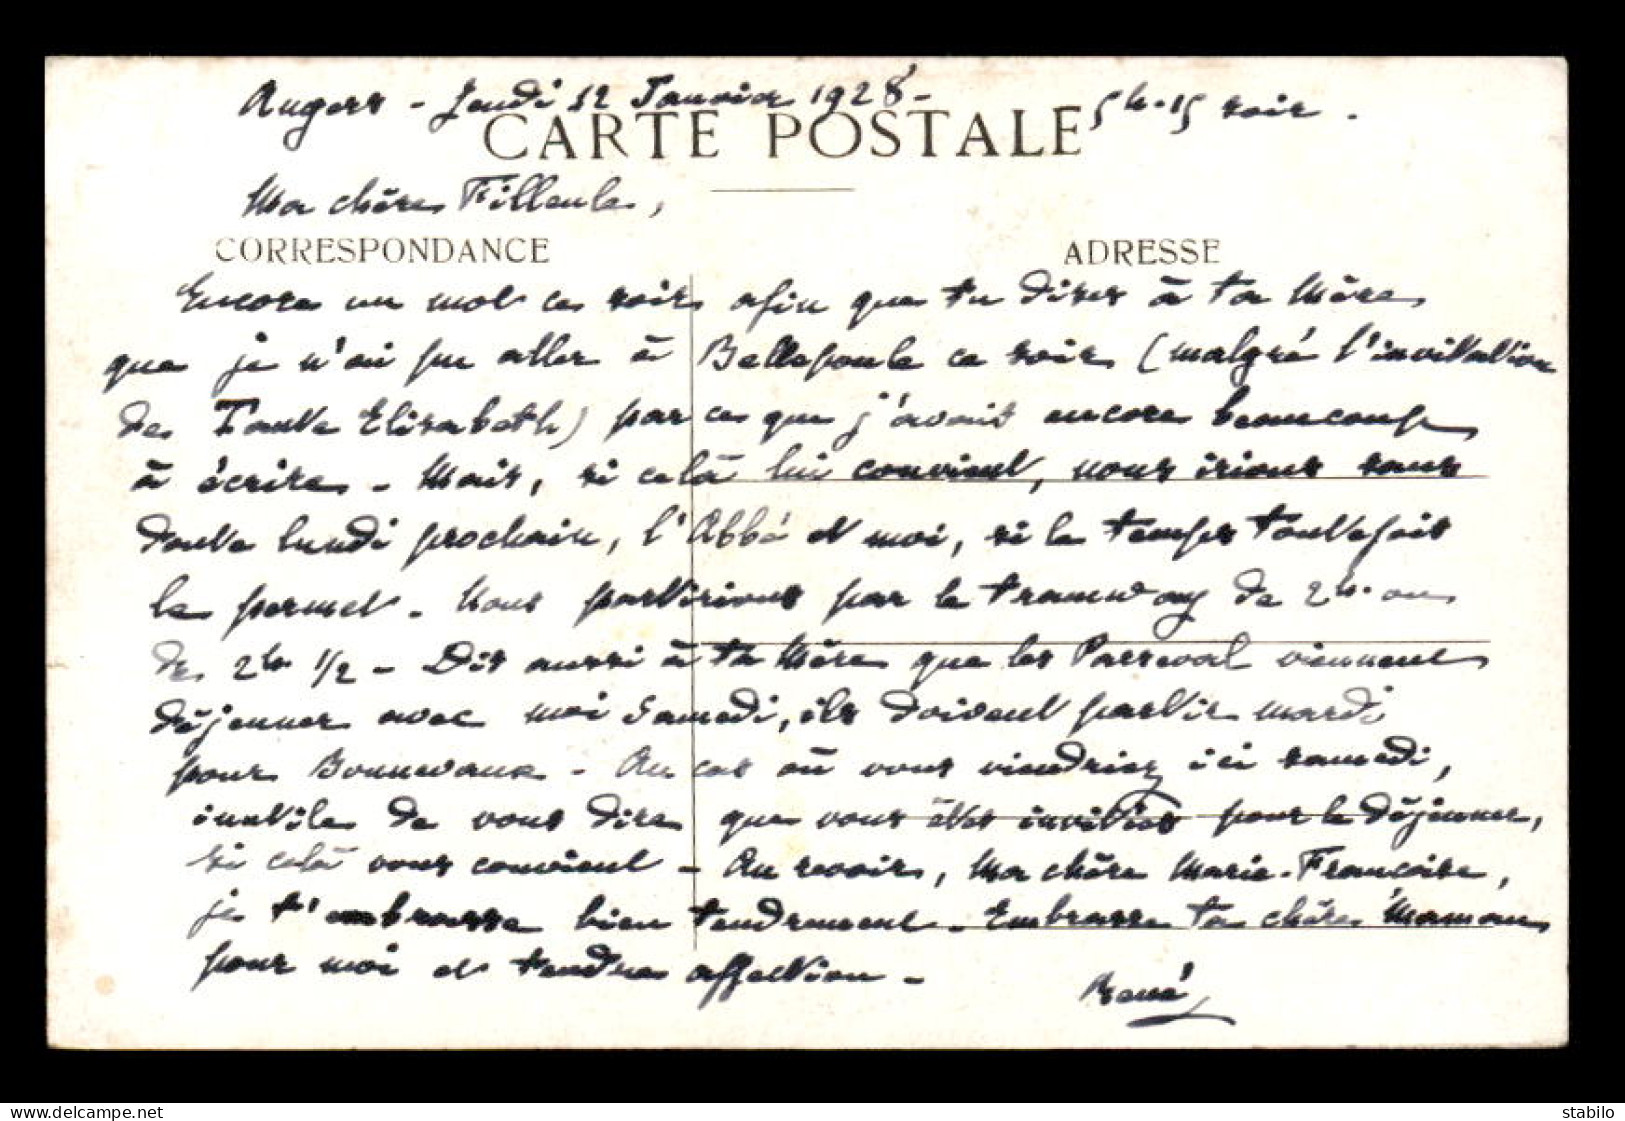 Angers - Jeudi 12 Janvier 1928 - 5h.15 soir.
CARTE POSTALE
Ma chère Filleule,
CORRESPONDANCE
ADRESSE
Encore un mot ce soir afin que tu dises à ta Mère
que je n'ai pu aller à Bellepoule ce soir (malgré l'invitation
de Tante Elisabeth) parce que j'avais encore beaucoup
à écrire - Mais, si celà lui convient, nous irions sans
doute lundi prochain, l'Abbé et moi, si le temps toutefois
le permet - Nous partirions par le tramway de 2h. ou
de 2h 1/2 - Dis aussi à ta Mère que les Parseval viennent
déjeuner avec moi Samedi, ils doivent partir mardi
pour Bonnevaux - Au cas où vous viendriez ici samedi,
inutile de vous dire que vous êtes invitées pour le déjeuner,
si celà vous convient - Au revoir, Ma chère Marie-Françoise,
je t'embrasse bien tendrement - Embrasse ta chère Maman
pour moi et tendre affection -
René
delcampe.net
stabilo